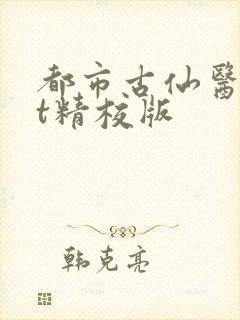 都市古仙醫
t精校版
韩克亮